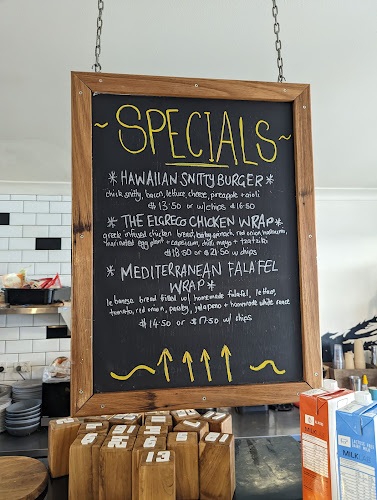 ~ SPECIALS ~
* HAWAIIAN SNITTY BURGER *
chick snitty, bacon, lettuce, cheese, pineapple + aioli
$13.50 or w/chips $16.50
* THE ELGRECO CHICKEN WRAP *
greek infused chicken breast, baby spinach, red onion,
marinated egg plant + capsicum, chilli mayo + tzatziki
$18.50 or $21.50 w chips
* MEDITERRANEAN FALAFEL
WRAP *
lebanese bread filled w/ homemade falafel, lettuce,
tomato, red onion, parsley, jalapeno + hommade white sauce
$14.50 or $17.50 w/ chips
13
MILK
MILK